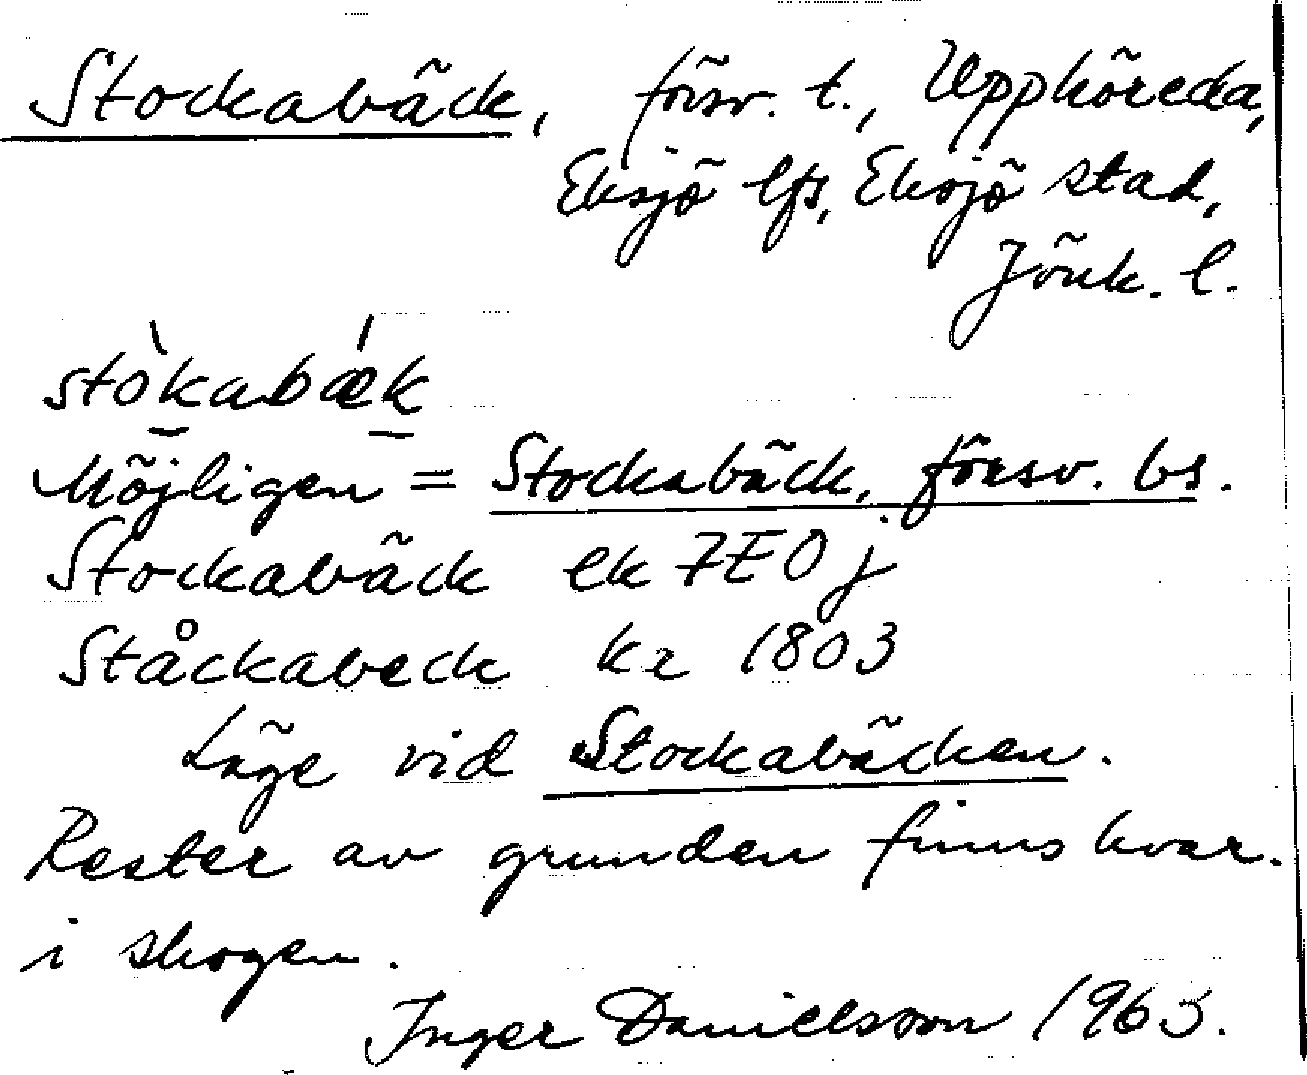 Stockabäck, försv. t., Upphöreda,
Eksjö lfs, Eksjö stad,
Jönk. l.
stòkabǽk
Möjligen = Stockabäck, försv. bs.
Stockabäck ek 7E0j
Ståckabeck kr 1803
Läge vid Stockabäcken.
Rester av grunden finns kvar.
i skogen.
Inger Danielsson 1963.